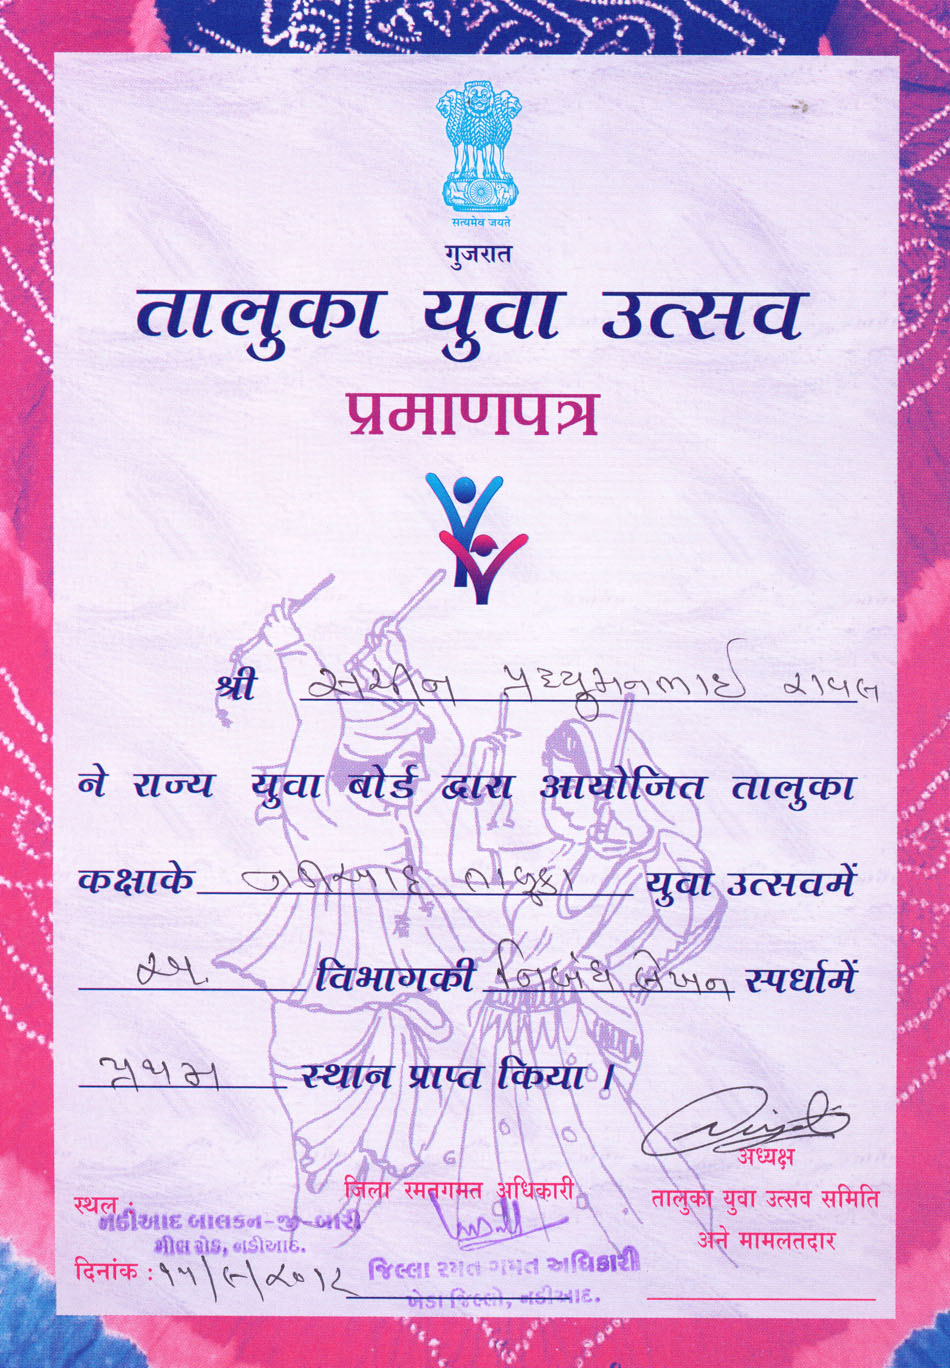 सत्यमेव जयते
गुजरात
तालुका युवा उत्सव
प्रमाणपत्र
श्री સચીન પ્રદ્યુમનભાઈ રાવલ
ने राज्य युवा बोर्ड द्वारा आयोजित तालुका
कक्षाके નડીઆદ તાલુકા युवा उत्सवमें
અ. विभागकी નિબંધ લેખન स्पर्धामें
પ્રથમ स्थान प्राप्त किया ।
अध्यक्ष
जिला रमतगमत अधिकारी
तालुका युवा उत्सव समिति
अने मामलतदार
स्थल :
નડીઆદ બાલકન-જી-બારી
મીલ રોડ, નડીઆદ.
दिनांक : ૧૫/૯/૨૦૧૨
જિલ્લા રમત ગમત અધિકારી
ખેડા જિલ્લો, નડીઆદ.